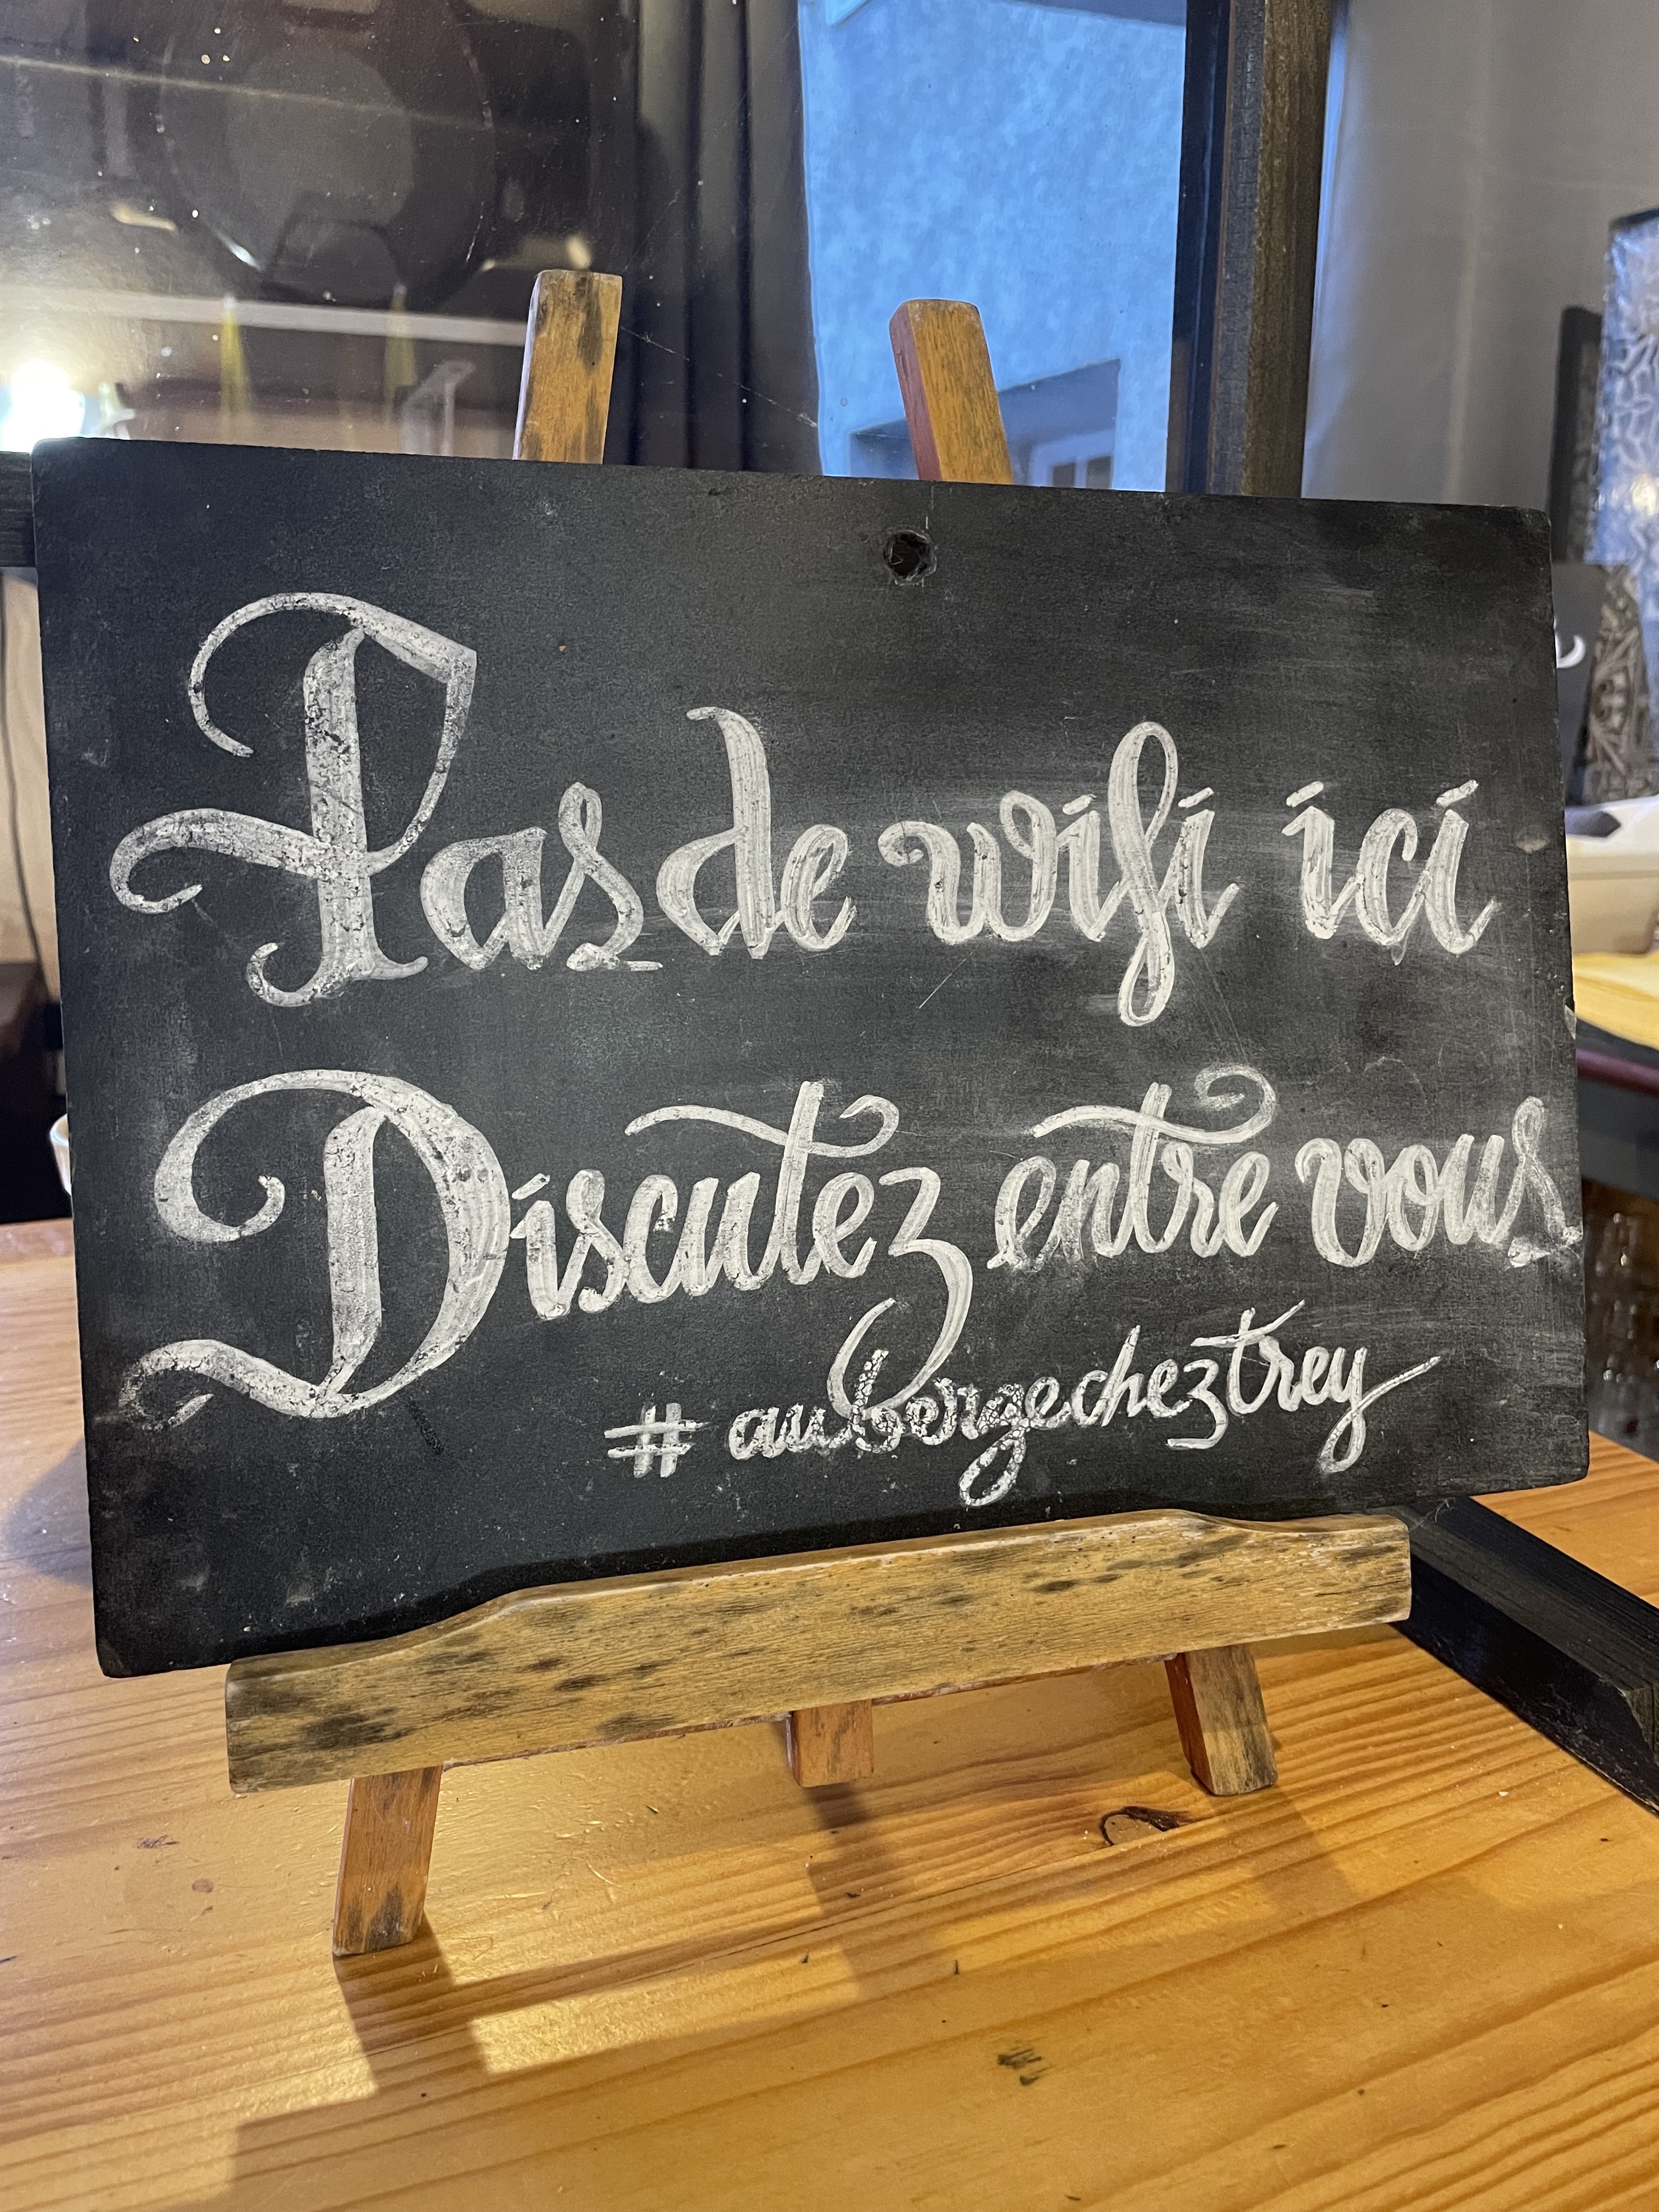 Pas de wifi ici
Discutez entre vous
# aubergecheztrey